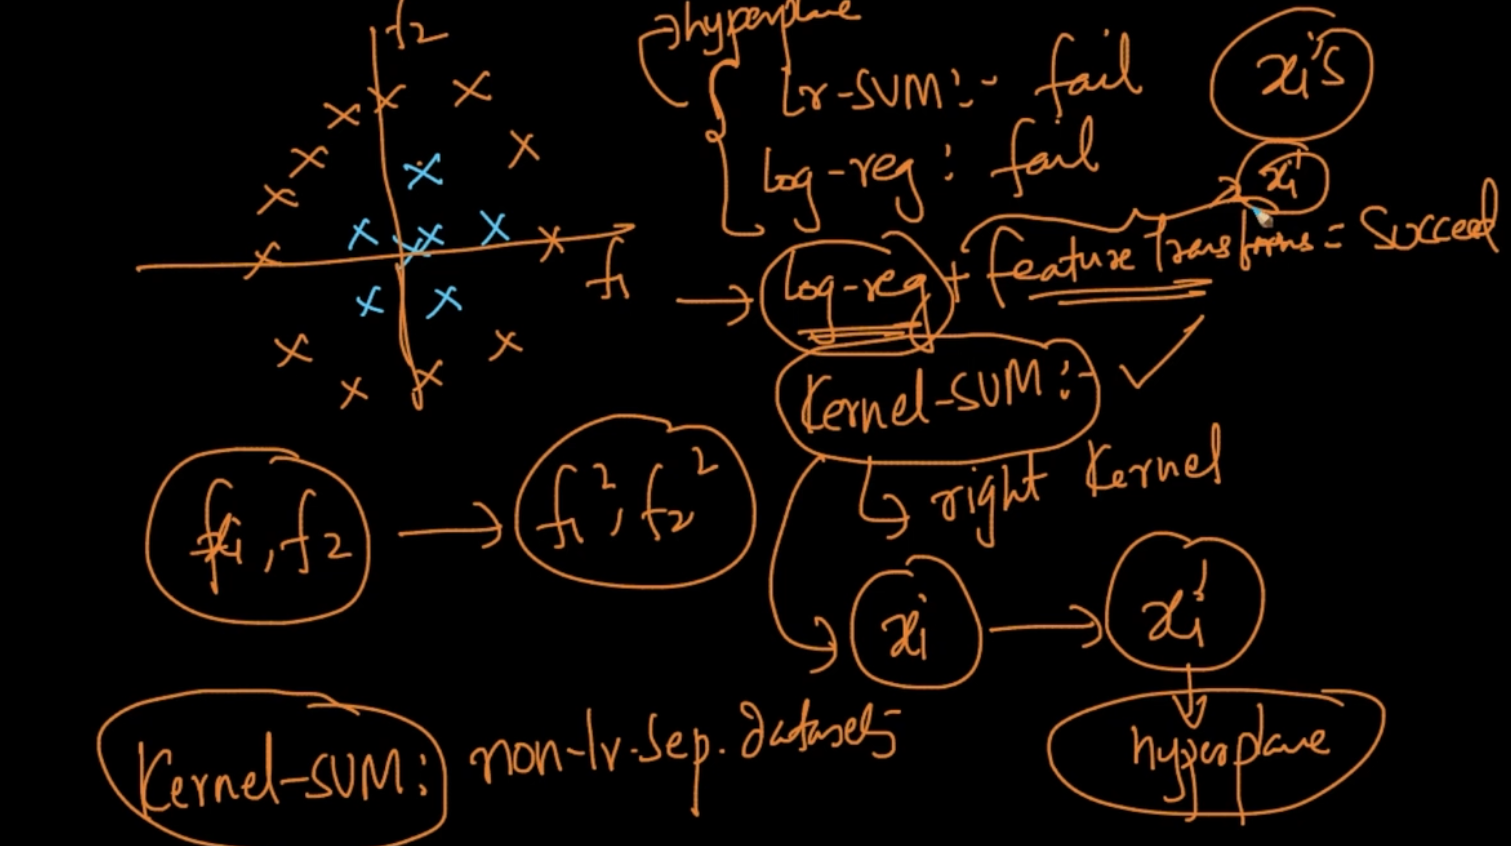 f2
hyperplane
Lr-SVM:- fail
xi's
log-reg: fail
xi'
f1
log-reg + feature Transforms = Succeed
Kernel-SVM:-
right Kernel
f1, f2 → f1², f2²
xi → xi'
hyperplane
Kernel-SVM: non-lr-sep. datasets